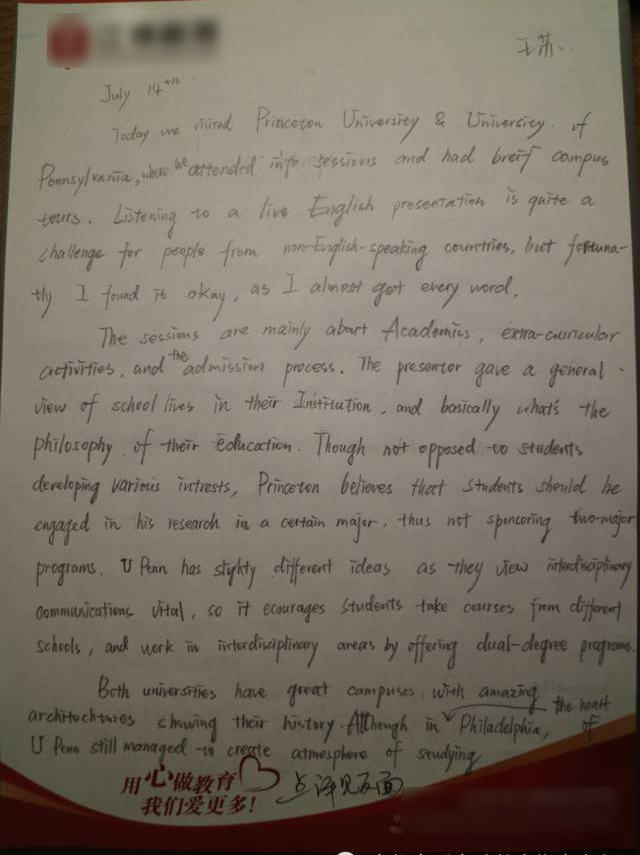 July 14th
Today we visited Princeton University & University of
Pennsylvania, where we attended info sessions and had breif campus
tours. Listening to a live English presentation is quite a
challenge for people from non-English-speaking countries, but fortuna-
tly I found it okay, as I almost got every word.
The sessions are mainly about Academics, extra-curricular
activities, and the admission process. The presentor gave a general
view of school lives in their Institution, and basically what's the
philosophy of their education. Though not opposed to students
developing various intrests, Princeton believes that students should be
engaged in his research in a certain major, thus not sponcoring two-major
programs. U Penn has slighty different ideas as they view interdisciplinary
communications vital, so it ecourages students take courses from different
schools, and work in interdisciplinary areas by offering dual-degree programs.
Both universities have great campuses with amazing
architechtures showing their history. Although in the heart of Philadelphia,
U Penn still managed to create atmosphere of studying
用心做教育
我们爱更多!
点评见反面